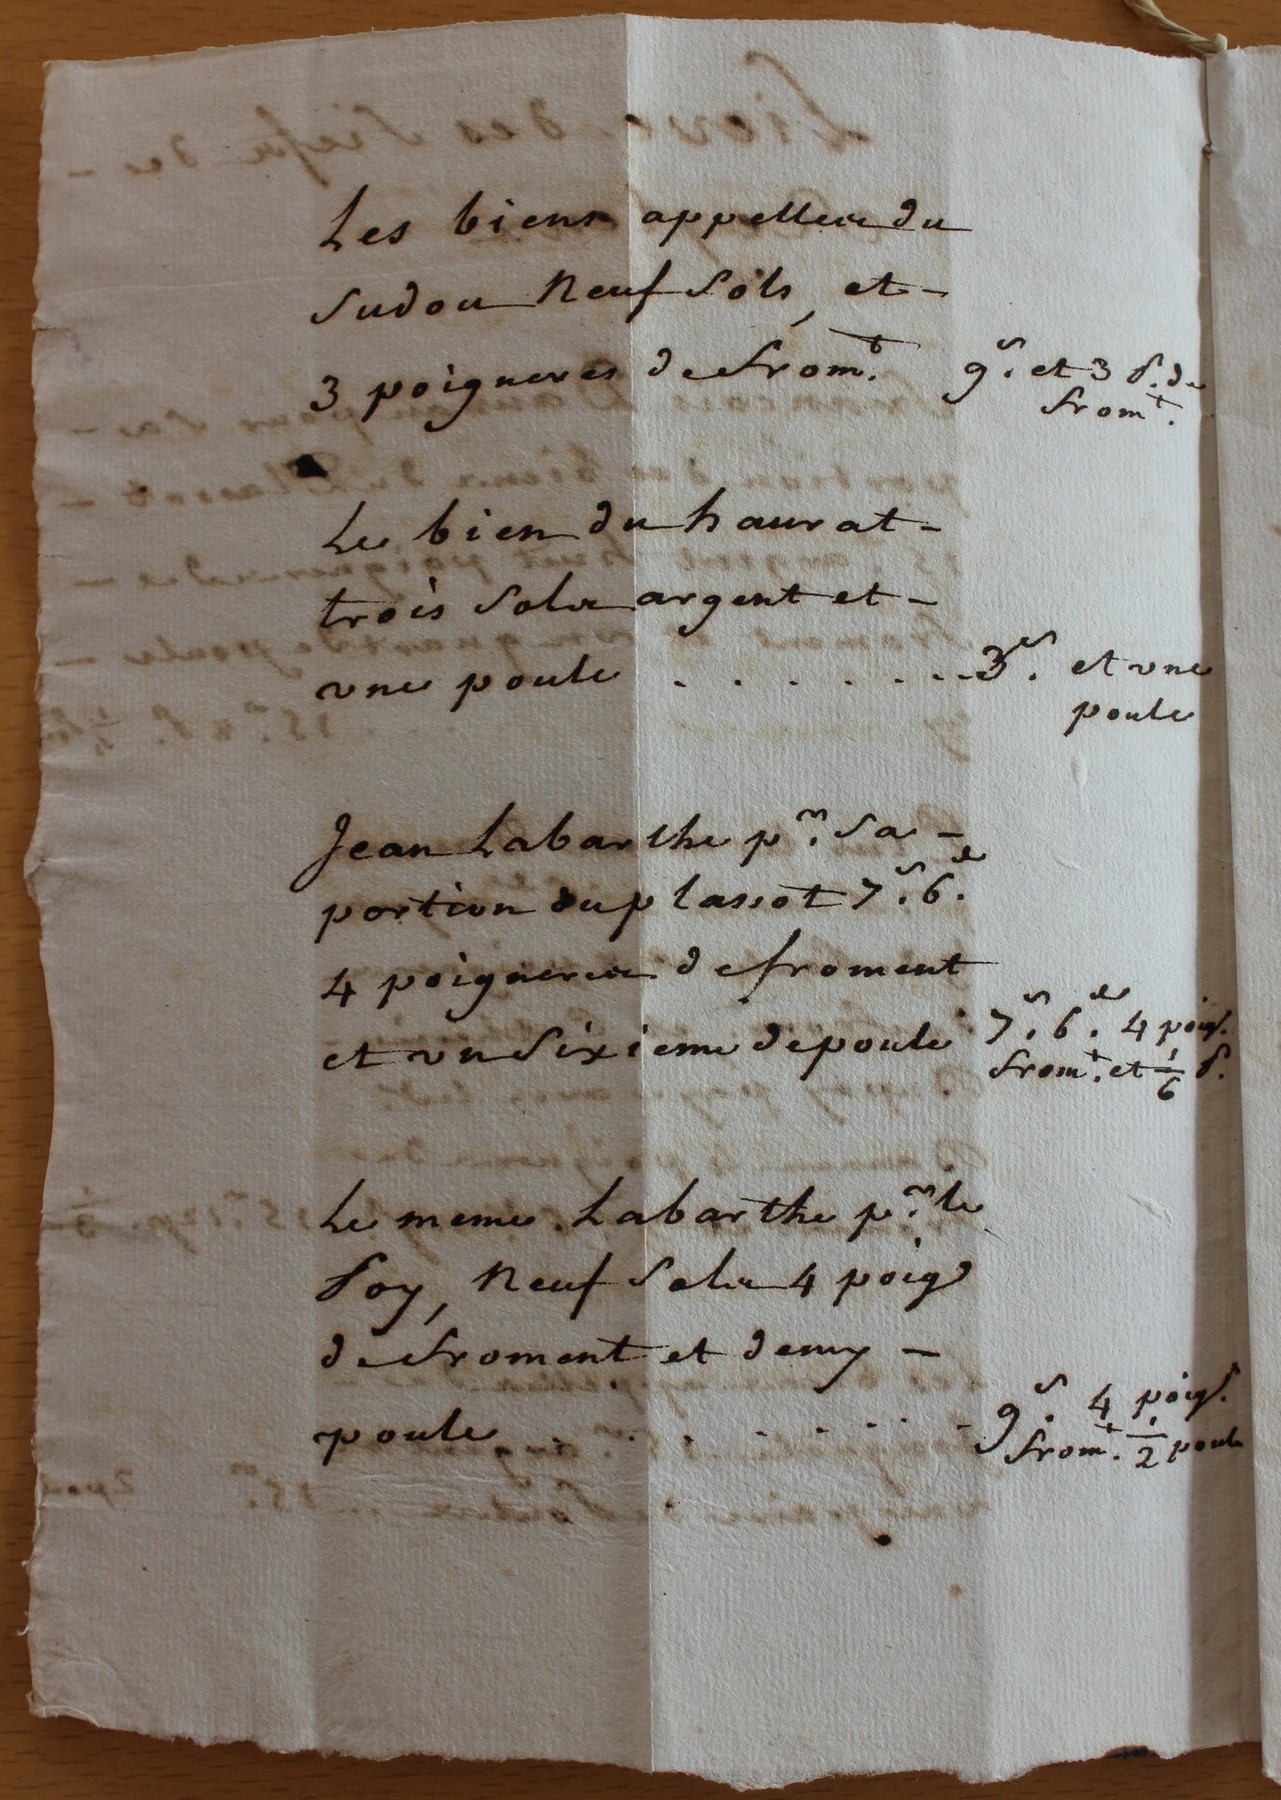 Les biens appelles du
sudou neuf sols, et -
3 poigneres de from.t 9.s et 3 p. de
from.t
Le bien du haurat -
trois sols argent et -
une poule . . . . . . . 3.s et une
poule
Jean Labarthe p.r sa -
portion du plassot 7.s 6.d
4 poigneres de froment
et un sixieme de poule 7.s 6.d 4 poig.
from.t et 1/6 p.
Le meme Labarthe p.r le
Poy, neuf sols 4 poig
de froment et demy -
poule . . . . . . 9.s 4 poig.
from.t 1/2 poule